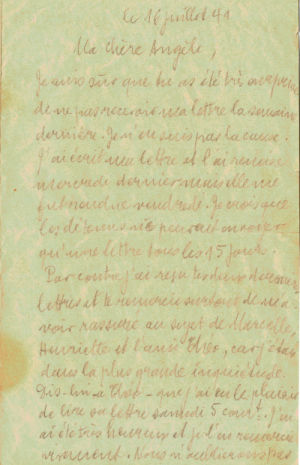 le 16 juillet 41
Ma chère Angèle,
Je suis sûr que tu as été très surprise
de ne pas recevoir ma lettre la semaine
dernière. Je n'en suis pas la cause.
J'ai écrit ma lettre et l'ai remise
mercredi dernier mais elle me
fut rendue vendredi. Je crois que
les détenus ne peuvent envoyer
qu'une lettre tous les 15 jours.
Par contre j'ai reçu tes deux dernières
lettres et te remercie surtout de m'a
voir rassuré au sujet de Marcelle,
Henriette et l'ami Théo, car j'étais
dans la plus grande inquiétude.
Dis-lui à Théo que j'ai eu le plaisir
de lire sa lettre samedi 5 court. J'en
ai été très heureux et je l'en remercie
vivement. Nous n'oublierons pas